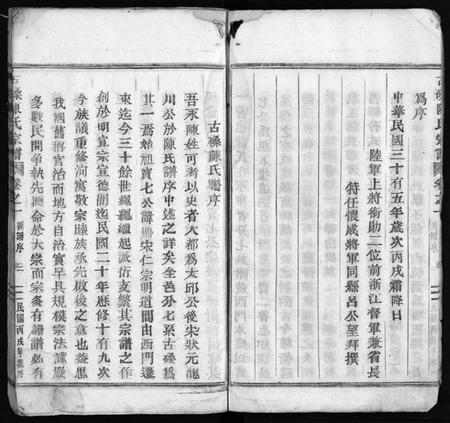 為序
中華民國三十有五年歲次丙戌霜降日
陸軍上將銜勛二位前浙江督軍兼省長
特任懷威將軍同縣呂公望拜撰
古磉陳氏宗譜
卷之一
古磉陳氏譜序
吾永陳姓可考以史者大都為太邱公後宋狀元龍
川公於陳氏譜序中述之詳矣全邑分七系古磉為
其一焉始祖寶七公諱 宋仁宗明道間由西門遷
來迄今三十餘世繩繩繼起派衍支繁其宗譜之作
創於明宣宗宣德間迄民國二十年歷修十有九次
今族議重修河寓敬宗睦族承先啟後之意也益思
我國舊稱官治而地方自治實早具規模宗法謹嚴
多數民間爭執先取命於大宗而宗必有譜譜必有
古磉陳氏宗譜
卷之一
新譜序
民國丙戌年重修